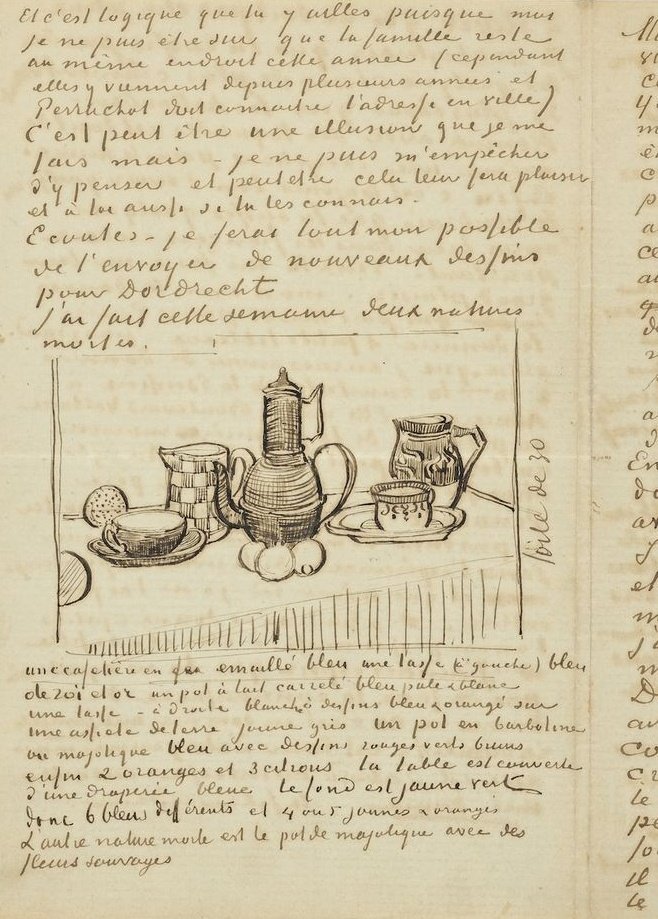 Et c'est logique que tu y ailles puisque moi
je ne puis être sur que la famille reste
au même endroit cette année (cependant
elles y viennent depuis plusieurs années et
Perruchot doit connaitre l'adresse en ville)
C'est peut être une illusion que je me
fais mais – je ne puis m'empêcher
d'y penser et peutetre cela leur fera plaisir
et à toi aussi si tu les connais.
Ecoutes – je ferai tout mon possible
de t'envoyer de nouveaux dessins
pour Dordrecht
J'ai fait cette semaine deux natures
mortes.
toile de 30
une cafetière en fer emaillé bleu une tasse (à gauche) bleu
de roi et or un pot à lait carrelé bleu pale & blanc
une tasse – à droite blanche à dessins bleu & orangé sur
une assiete de terre jaune gris un pot en barbotine
ou majolique bleu avec dessins rouges verts bruns
enfin 2 oranges et 3 citrons la table est couverte
d'une draperie bleue le fond est jaune vert
donc 6 bleus différents et 4 ou 5 jaunes & oranges
L'autre nature morte est le pot de majolique avec des
fleurs sauvages